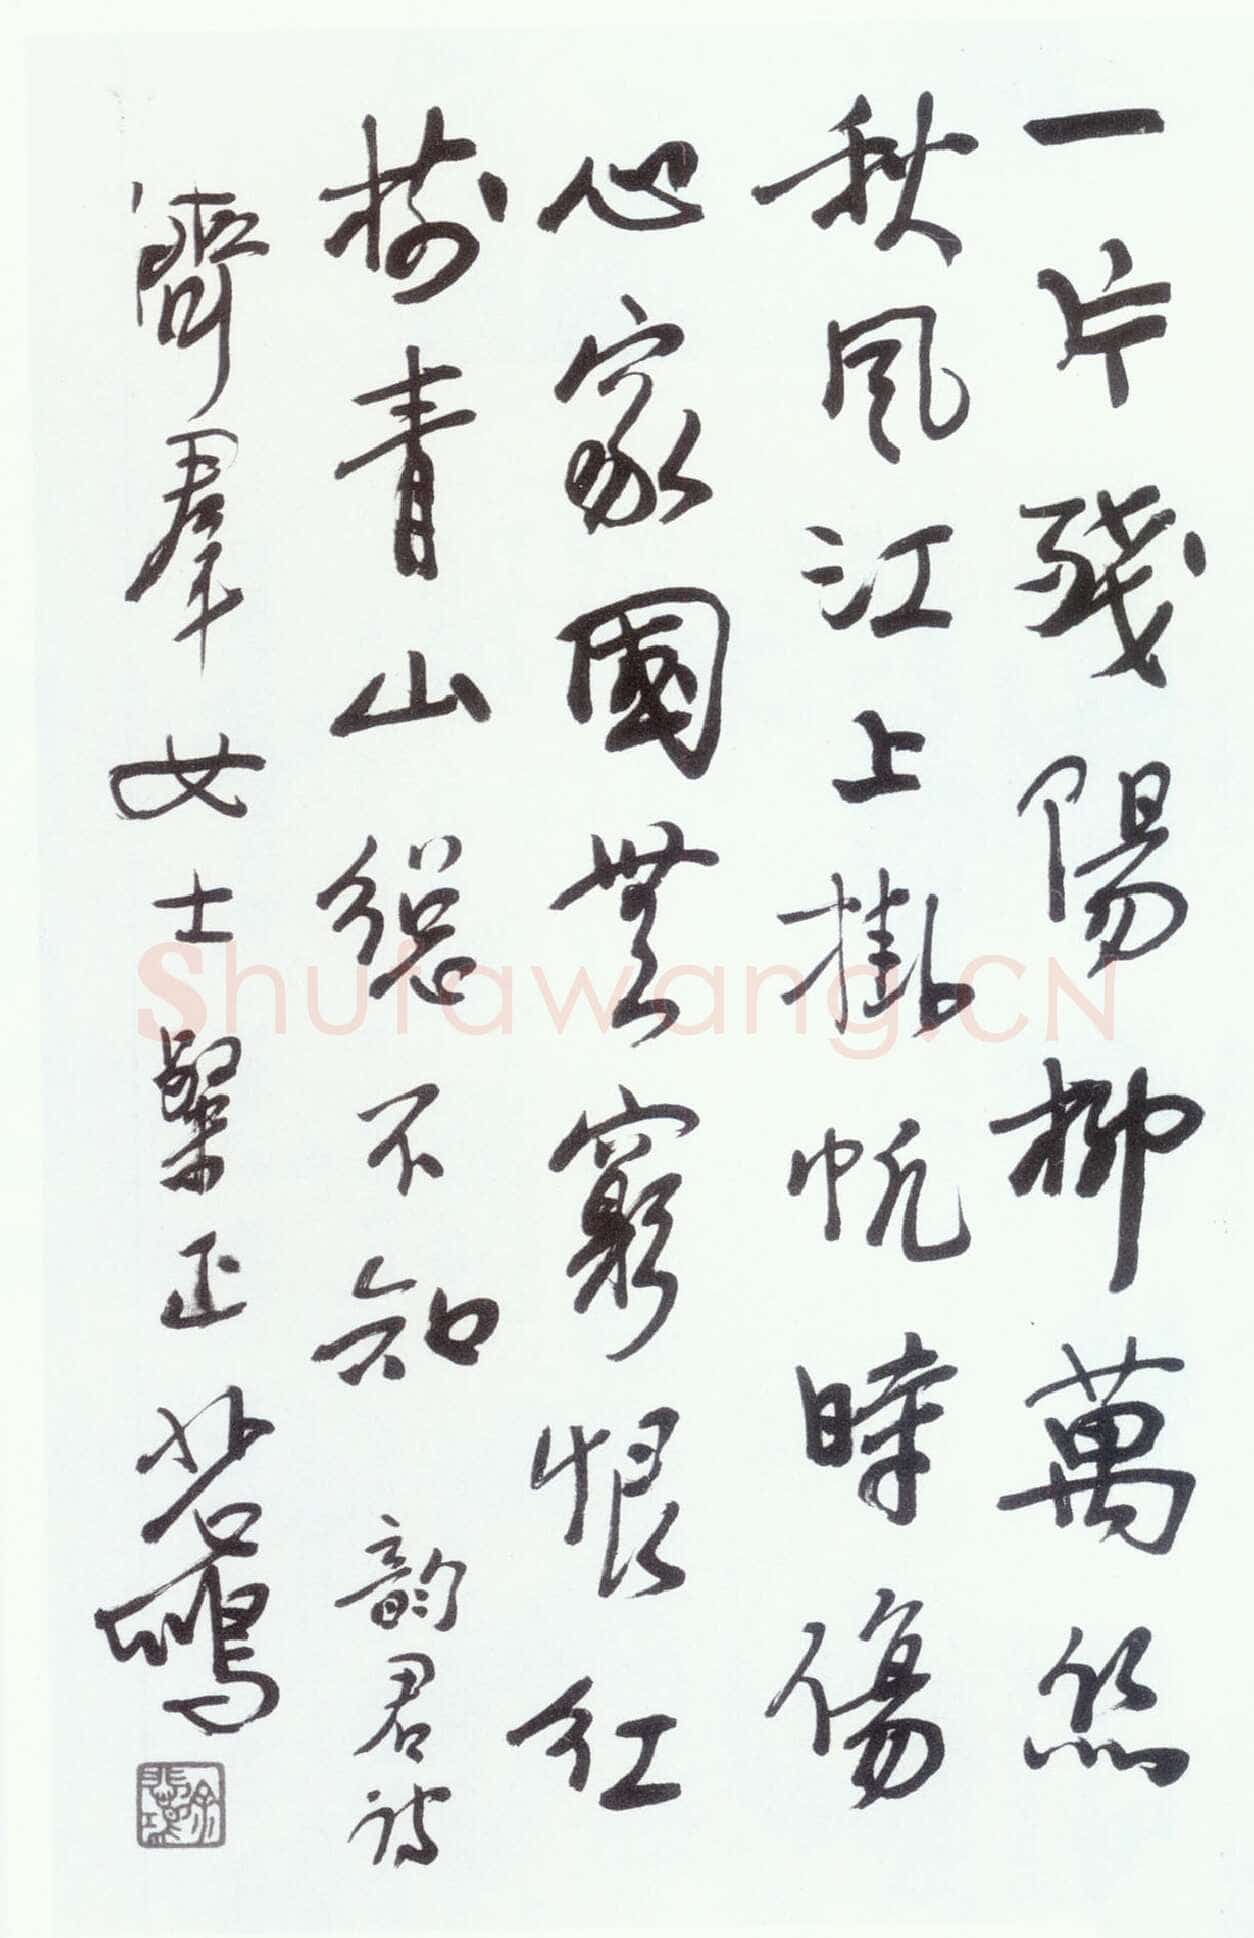 一片殘陽柳萬絲
秋風江上掛帆時傷
心家國無窮恨紅
樹青山總不知 韻君詩
齊羣女士粲正 悲鴻
徐悲鴻
Shufawang.CN